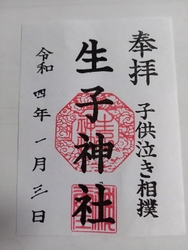 奉拝
子供泣き相撲
生子神社
令和四年一月三日